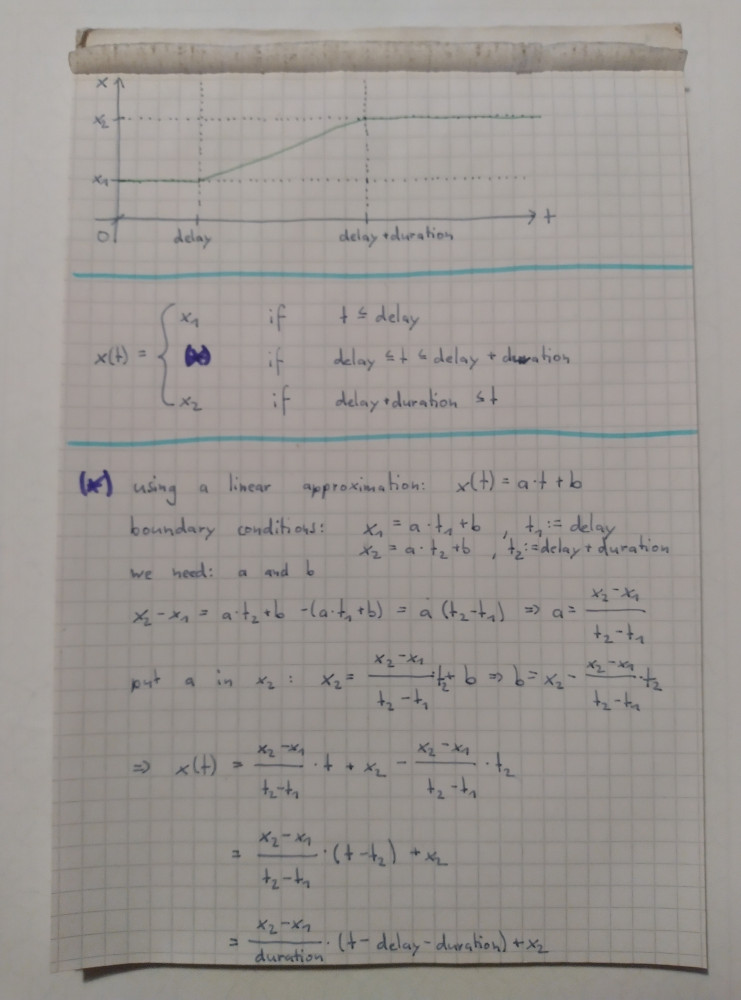 x
x₂
x₁
0 delay delay+duration t
x₁ if t ≤ delay
x(t) = { (x) if delay ≤ t ≤ delay + duration
x₂ if delay+duration ≤ t
(x) using a linear approximation: x(t) = a·t+b
boundary conditions: x₁ = a·t₁+b , t₁:= delay
x₂ = a·t₂+b , t₂:=delay+duration
we need: a and b
x₂-x₁ = a·t₂+b -(a·t₁+b) = a (t₂-t₁) ⇒ a= (x₂-x₁)/(t₂-t₁)
put a in x₂ : x₂= (x₂-x₁)/(t₂-t₁)·t₂+ b ⇒ b= x₂ - (x₂-x₁)/(t₂-t₁)·t₂
⇒ x(t) = (x₂-x₁)/(t₂-t₁) · t + x₂ - (x₂-x₁)/(t₂-t₁) · t₂
= (x₂-x₁)/(t₂-t₁) · (t-t₂) + x₂
= (x₂-x₁)/duration · (t- delay-duration) + x₂